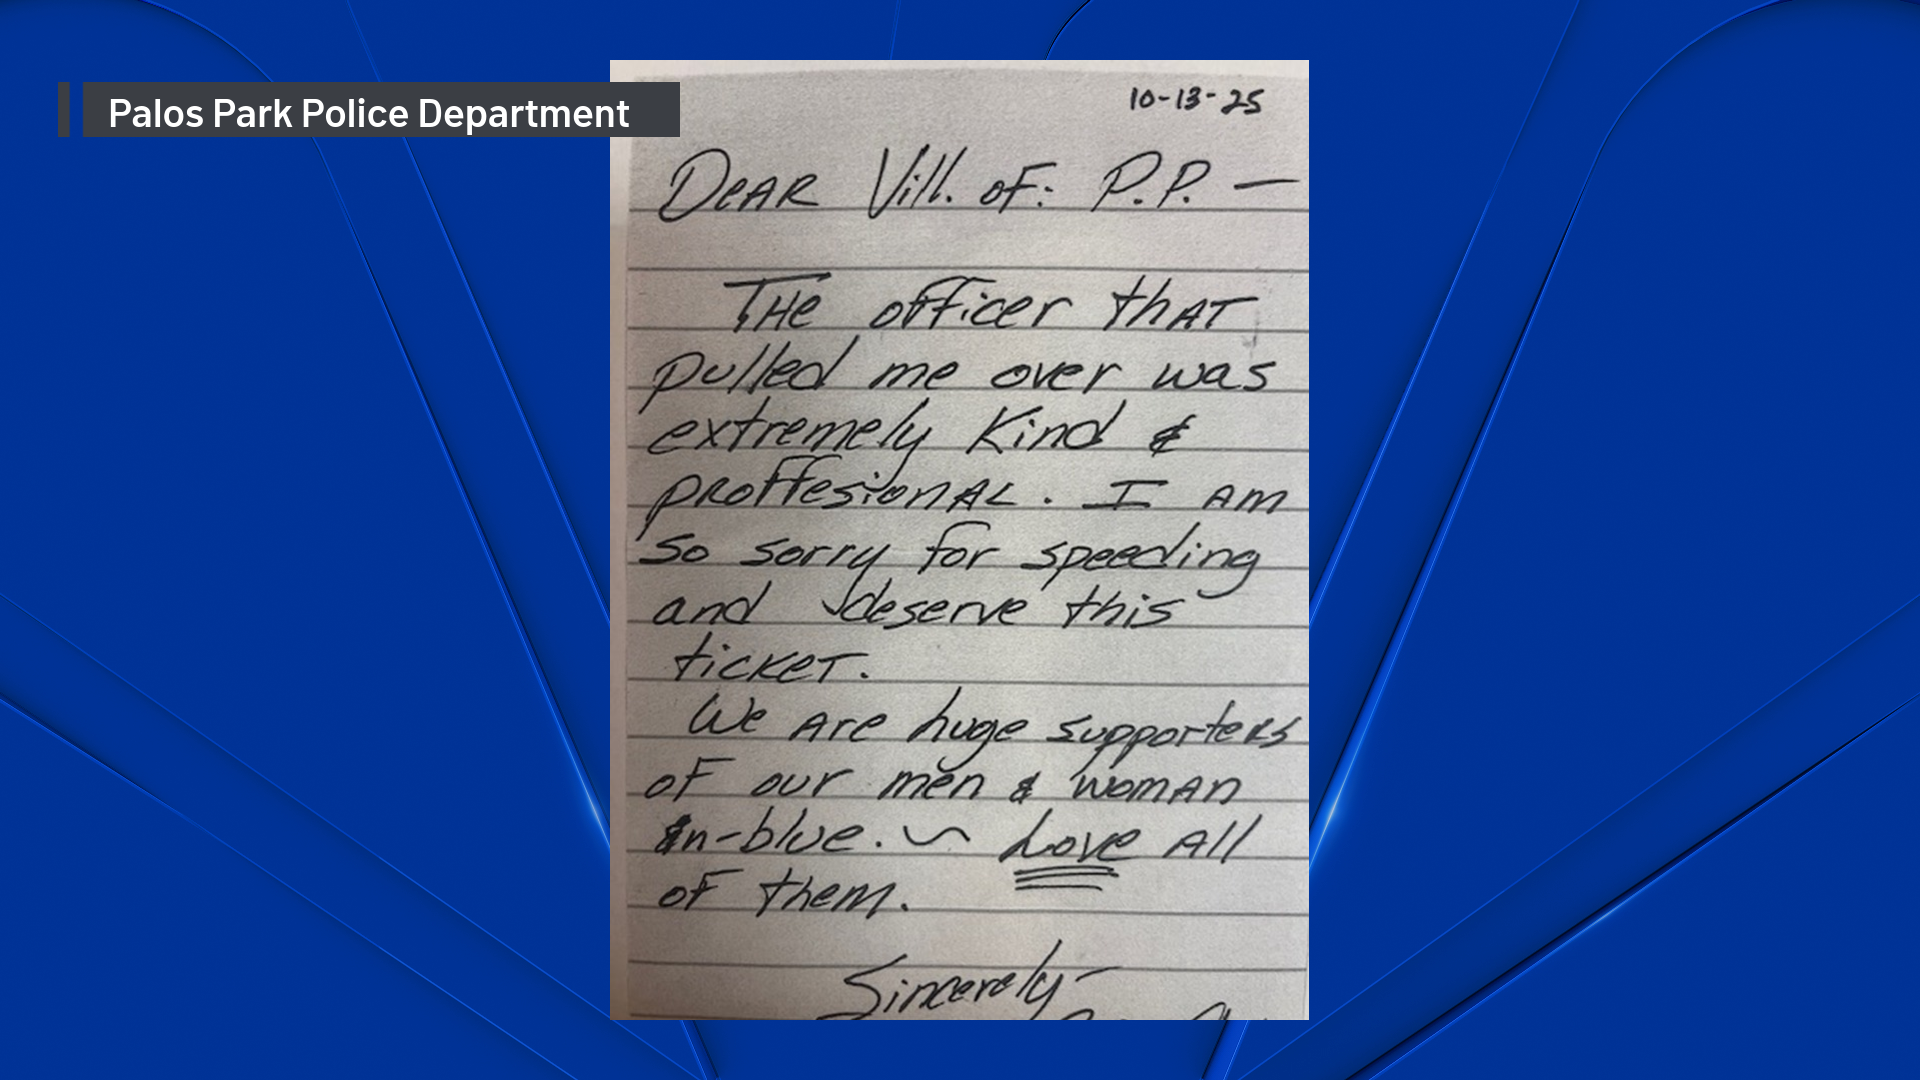 Palos Park Police Department
10-13-25
Dear Vill. of: P.P. —
The officer that
pulled me over was
extremely kind &
proffesional. I am
so sorry for speeding
and deserve this
ticket.
We are huge supporters
of our men & woman
in-blue. ~ Love all
of them.
Sincerely-